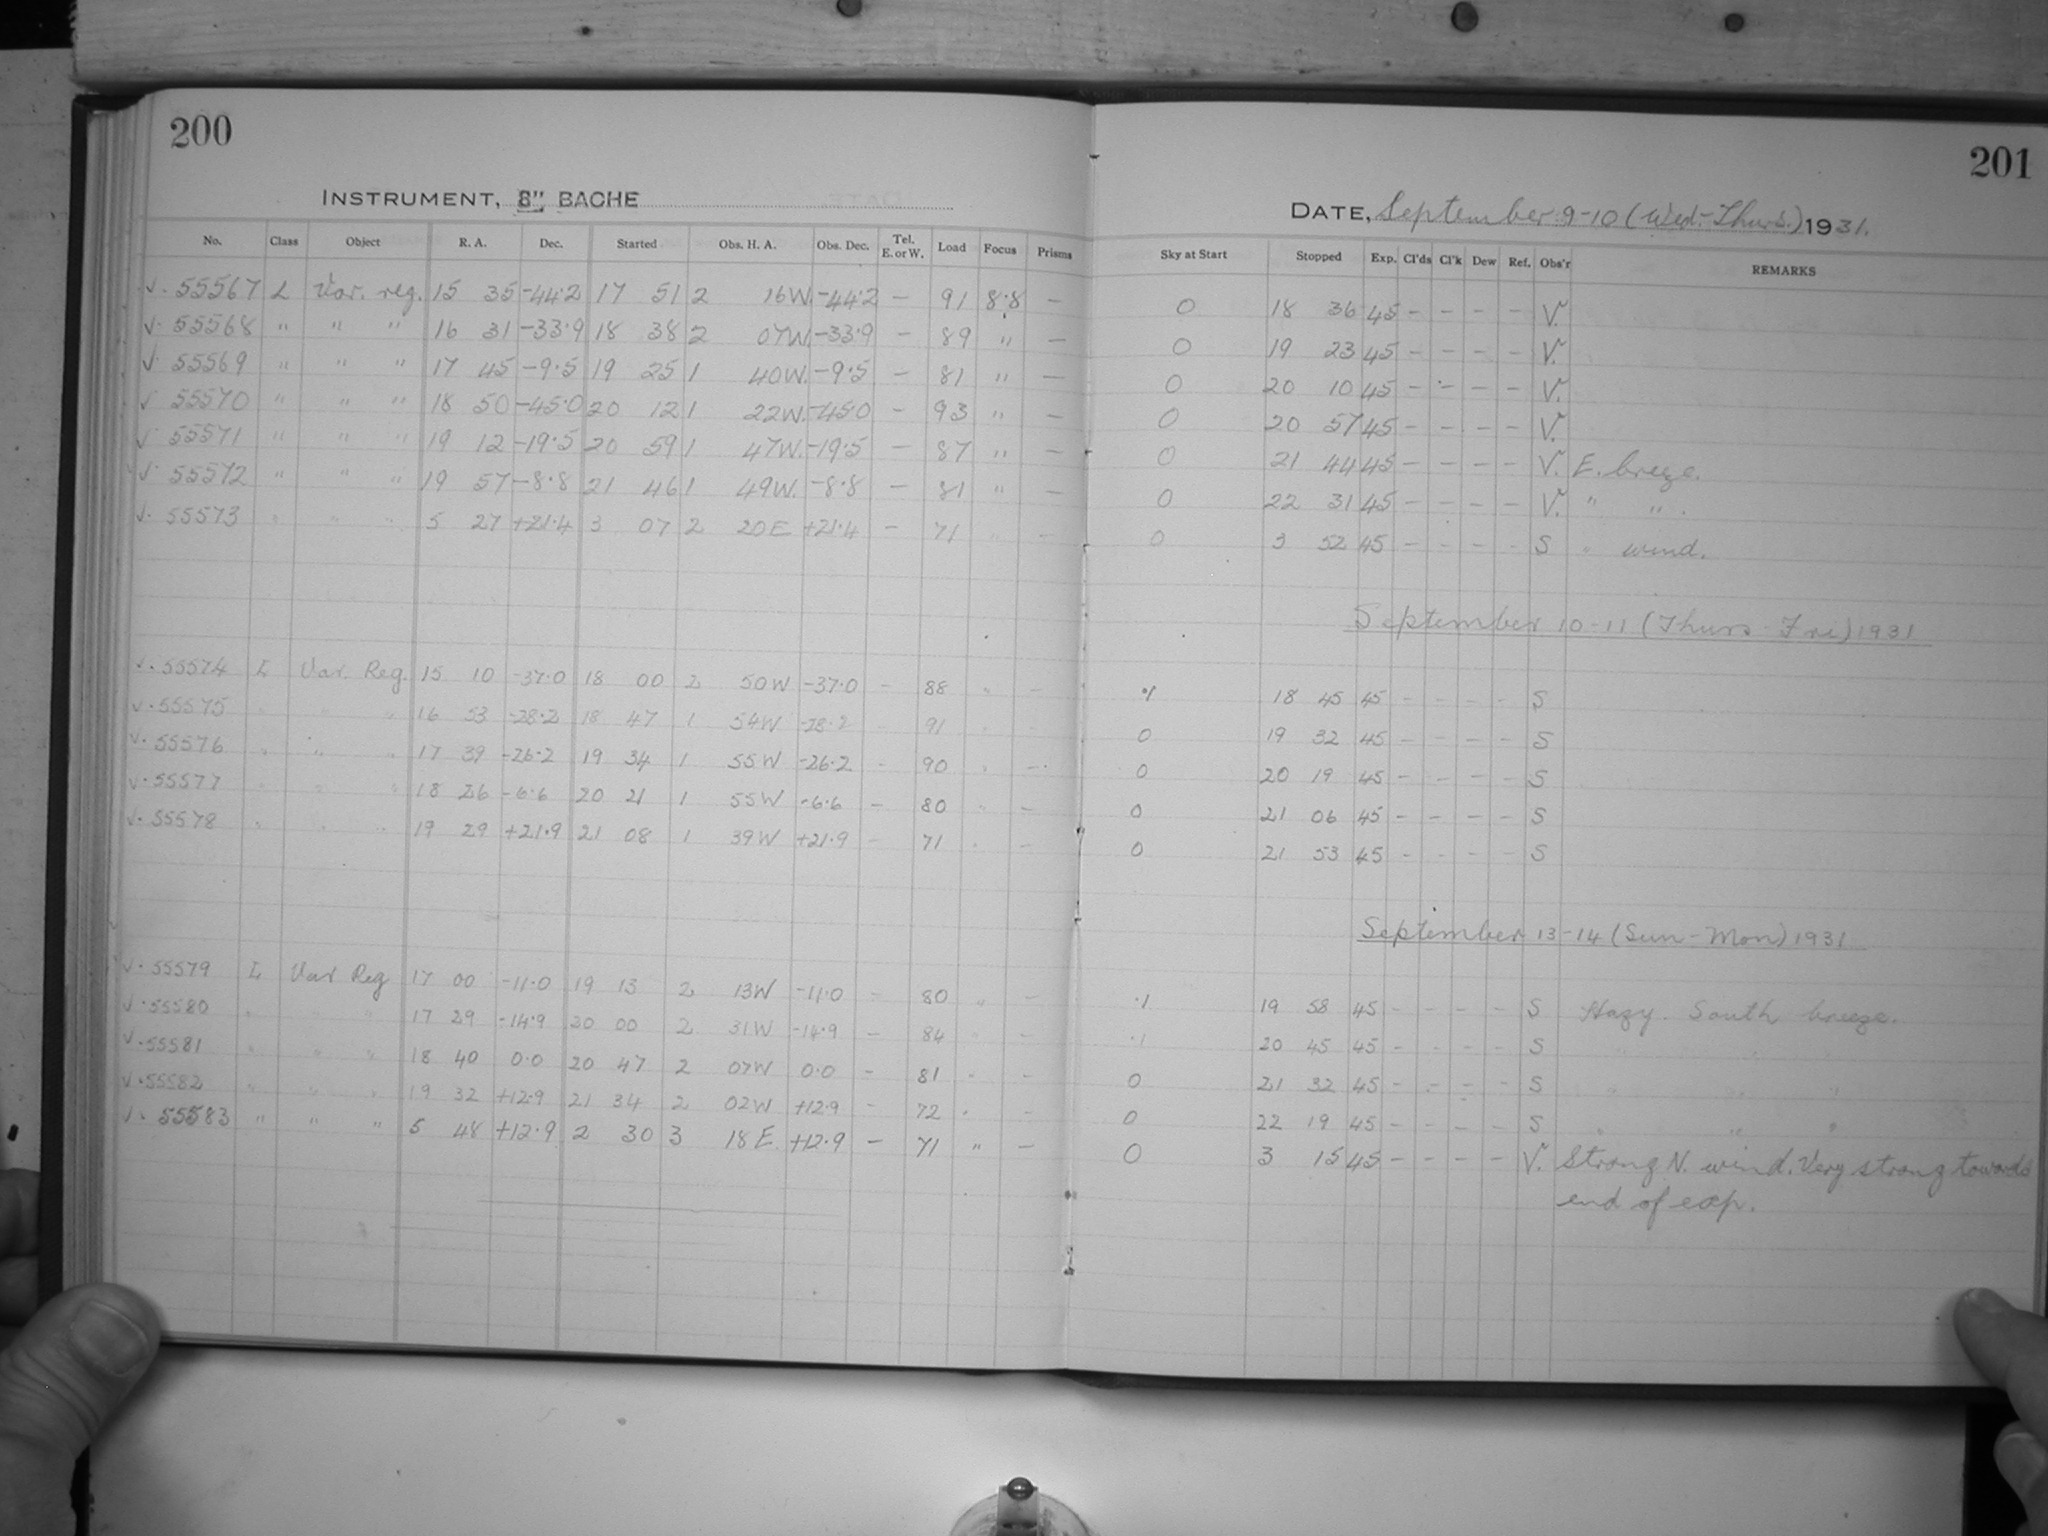 200
INSTRUMENT, 8" BACHE
No. Class Object R. A. Dec. Started Obs. H. A. Obs. Dec. Tel. E. or W. Load Focus Prisms
√. 55567 L Var. reg. 15 35 -44.2 17 51 2 16W. -44.2 - 91 8.8 -
√. 55568 " " " 16 31 -33.9 18 38 2 07W. -33.9 - 89 " -
√. 55569 " " " 17 45 -9.5 19 25 1 40W. -9.5 - 81 " -
√. 55570 " " " 18 50 -45.0 20 12 1 22W. -45.0 - 93 " -
√. 55571 " " " 19 12 -19.5 20 59 1 47W. -19.5 - 87 " -
√. 55572 " " " 19 57 -8.8 21 46 1 49W. -8.8 - 81 " -
√. 55573 " " " 5 27 +21.4 3 07 2 20E +21.4 - 71 " -
√. 55574 L Var. Reg. 15 10 -37.0 18 00 2 50W -37.0 - 88 " -
√. 55575 " " " 16 53 -28.2 18 47 1 54W -28.2 - 91 " -
√. 55576 " " " 17 39 -26.2 19 34 1 55W -26.2 - 90 " -
√. 55577 " " " 18 26 -6.6 20 21 1 55W -6.6 - 80 " -
√. 55578 " " " 19 29 +21.9 21 08 1 39W +21.9 - 71 " -
√. 55579 L Var Reg 17 00 -11.0 19 13 2 13W -11.0 - 80 " -
√. 55580 " " " 17 29 -14.9 20 00 2 31W -14.9 - 84 " -
√. 55581 " " " 18 40 0.0 20 47 2 07W 0.0 - 81 " -
√. 55582 " " " 19 32 +12.9 21 34 2 02W +12.9 - 72 " -
√. 55583 " " " 5 48 +12.9 2 30 3 18E +12.9 - 71 " -
201
DATE, September 9-10 (Wed.-Thurs.) 1931.
Sky at Start Stopped Exp. Cl'ds Cl'k Dew Ref. Obs'r REMARKS
0 18 36 45 - - - - V.
0 19 23 45 - - - - V.
0 20 10 45 - - - - V.
0 20 57 45 - - - - V.
0 21 44 45 - - - - V. E. breeze.
0 22 31 45 - - - - V. " " .
0 3 52 45 - - - - S " wind.
September 10-11 (Thurs-Fri) 1931
.1 18 45 45 - - - - S
0 19 32 45 - - - - S
0 20 19 45 - - - - S
0 21 06 45 - - - - S
0 21 53 45 - - - - S
September 13-14 (Sun-Mon) 1931
.1 19 58 45 - - - - S Hazy. South breeze.
.1 20 45 45 - - - - S " " "
0 21 32 45 - - - - S " " "
0 22 19 45 - - - - S " " "
0 3 15 45 - - - - V. Strong N. wind. Very strong towards
end of exp.